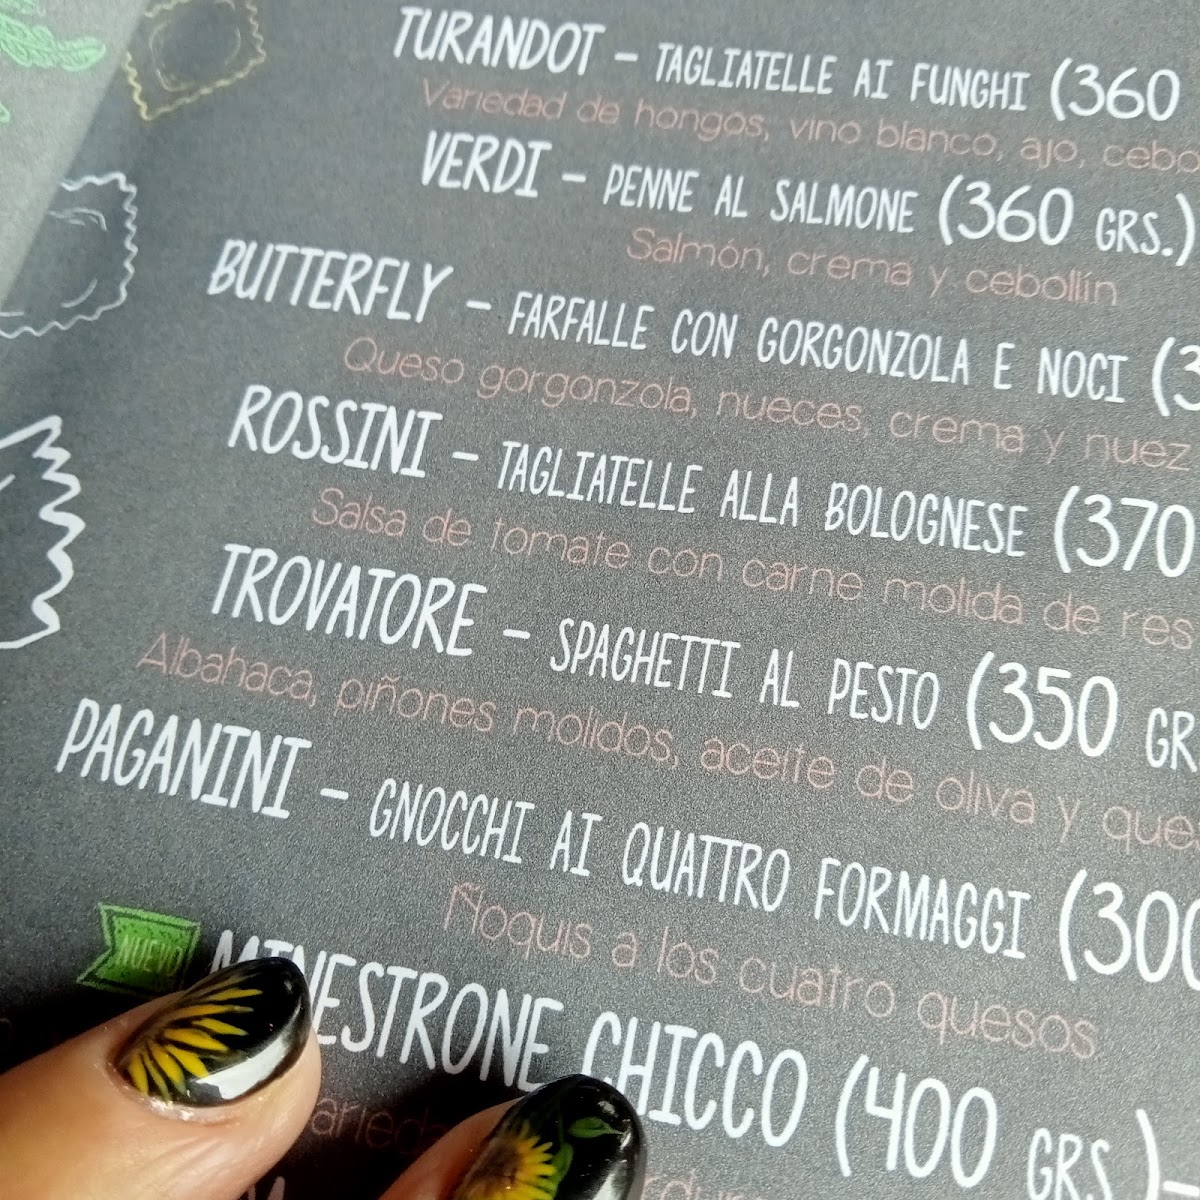 TURANDOT – TAGLIATELLE AI FUNGHI (360
Variedad de hongos, vino blanco, ajo,
VERDI – PENNE AL SALMONE (360 GRS.)
Salmón, crema y cebollín
BUTTERFLY – FARFALLE CON GORGONZOLA E NOCI (3
Queso gorgonzola, nueces, crema y nuez
ROSSINI – TAGLIATELLE ALLA BOLOGNESE (370
Salsa de tomate con carne molida de res
TROVATORE – SPAGHETTI AL PESTO (350 GR
Albahaca, piñones molidos, aceite de oliva y que
PAGANINI – GNOCCHI AI QUATTRO FORMAGGI (300
Ñoquis a los cuatro quesos
NUEVO
MINESTRONE CHICCO (400 GRS.)–